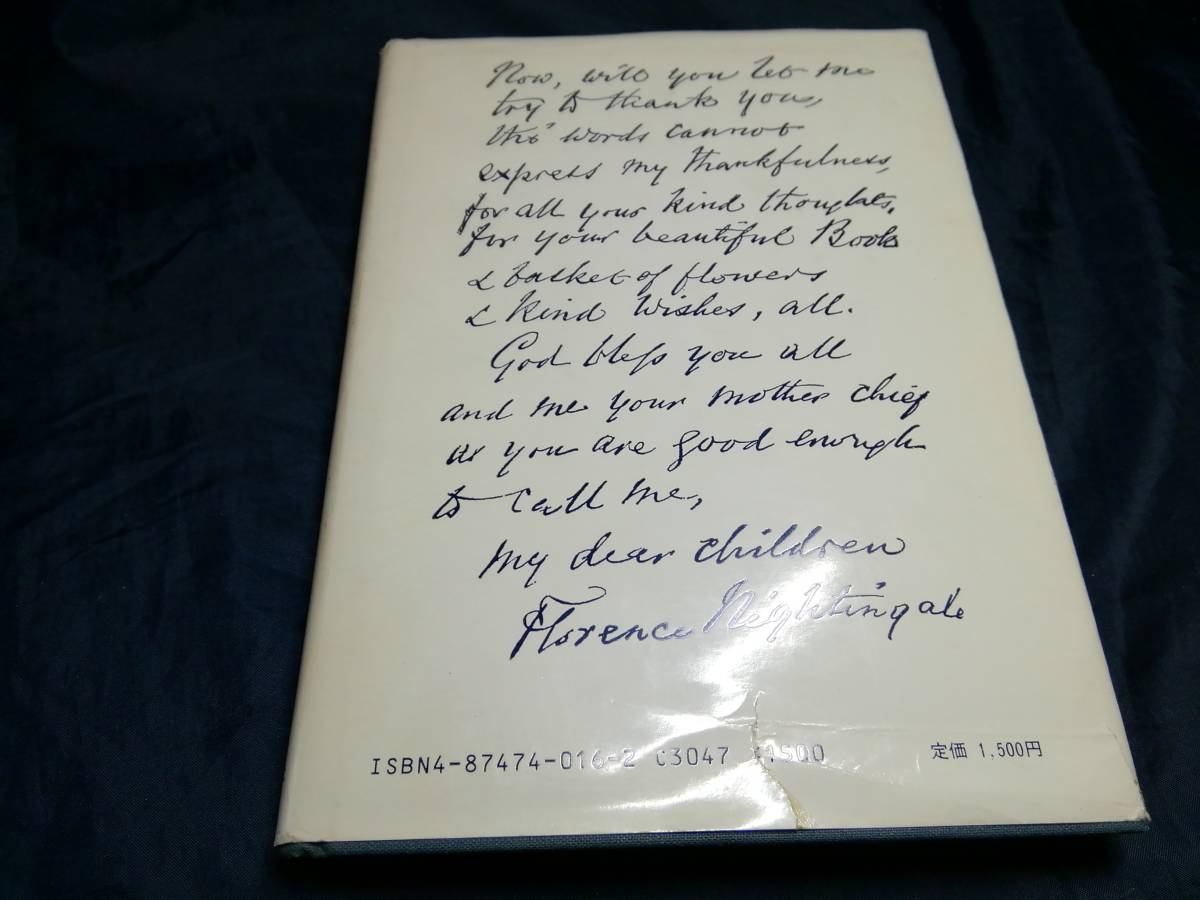 Now, will you let me
try to thank you,
tho' words cannot
express my thankfulness,
for all your kind thoughts,
for your beautiful Book
& basket of flowers
& kind wishes, all.
God bless you all
and me your mother chief
as you are good enough
to call me,
my dear children
Florence Nightingale
ISBN4-87474-016-2 C3047 ¥1500 定価 1,500円